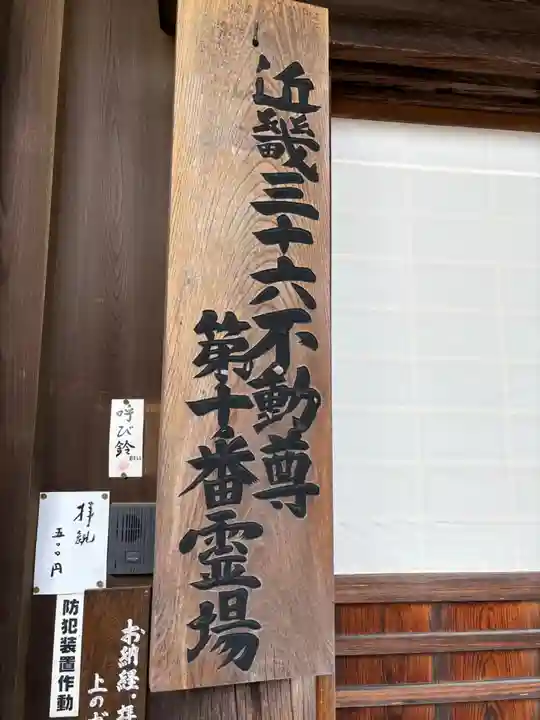 近畿三十六不動尊
第十番霊場
呼び鈴
拝観
五〇〇円
防犯装置作動
お納経・拝
上のボ